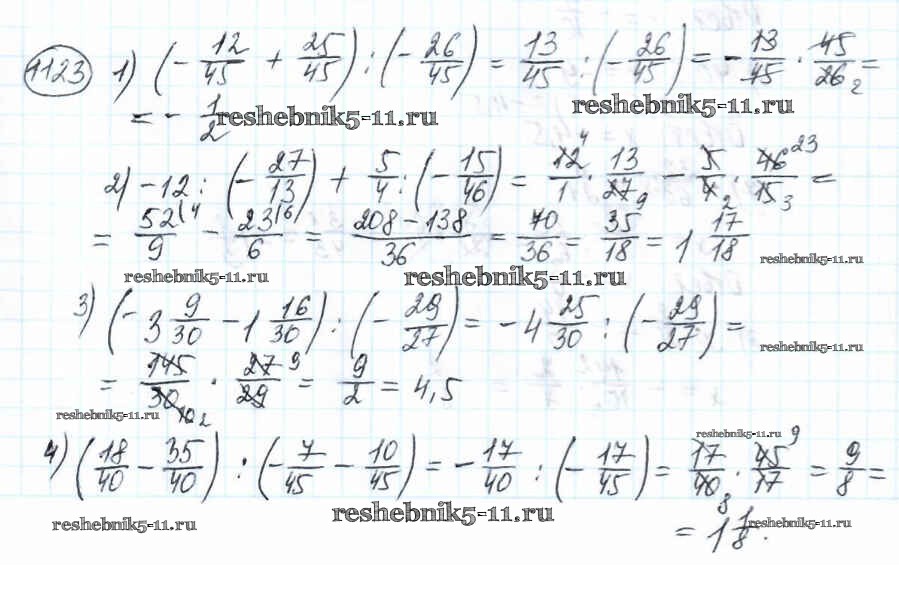 1123 1) (- 12/45 + 25/45) : (- 26/45) = 13/45 : (- 26/45) = - 13/45 · 45/26 2 =
= - 1/2
reshebnik5-11.ru reshebnik5-11.ru
2) -12 : (- 27/13) + 5/4 : (- 15/46) = 12 4/1 · 13/27 9 - 5/4 2 · 46 23/15 3 =
= 52 (4/9 - 23 (6/6 = 208 - 138/36 = 70/36 = 35/18 = 1 17/18
reshebnik5-11.ru reshebnik5-11.ru reshebnik5-11.ru
3) (- 3 9/30 - 1 16/30) : (- 29/27) = - 4 25/30 : (- 29/27) =
reshebnik5-11.ru
= 145/30 10 2 · 27 9/29 = 9/2 = 4,5
reshebnik5-11.ru
reshebnik5-11.ru
4) (18/40 - 35/40) : (- 7/45 - 10/45) = - 17/40 : (- 17/45) = 17/40 8 · 45 9/17 = 9/8 =
reshebnik5-11.ru reshebnik5-11.ru reshebnik5-11.ru
= 1 1/8.